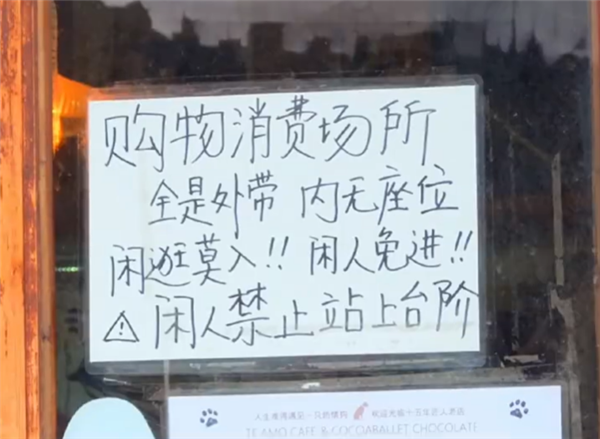 购物消费场所
全是外带 内无座位
闲逛莫入!! 闲人免进!!
⚠ 闲人禁止站上台阶
TE AMO CAFE & COCOABALLET CHOCOLATE